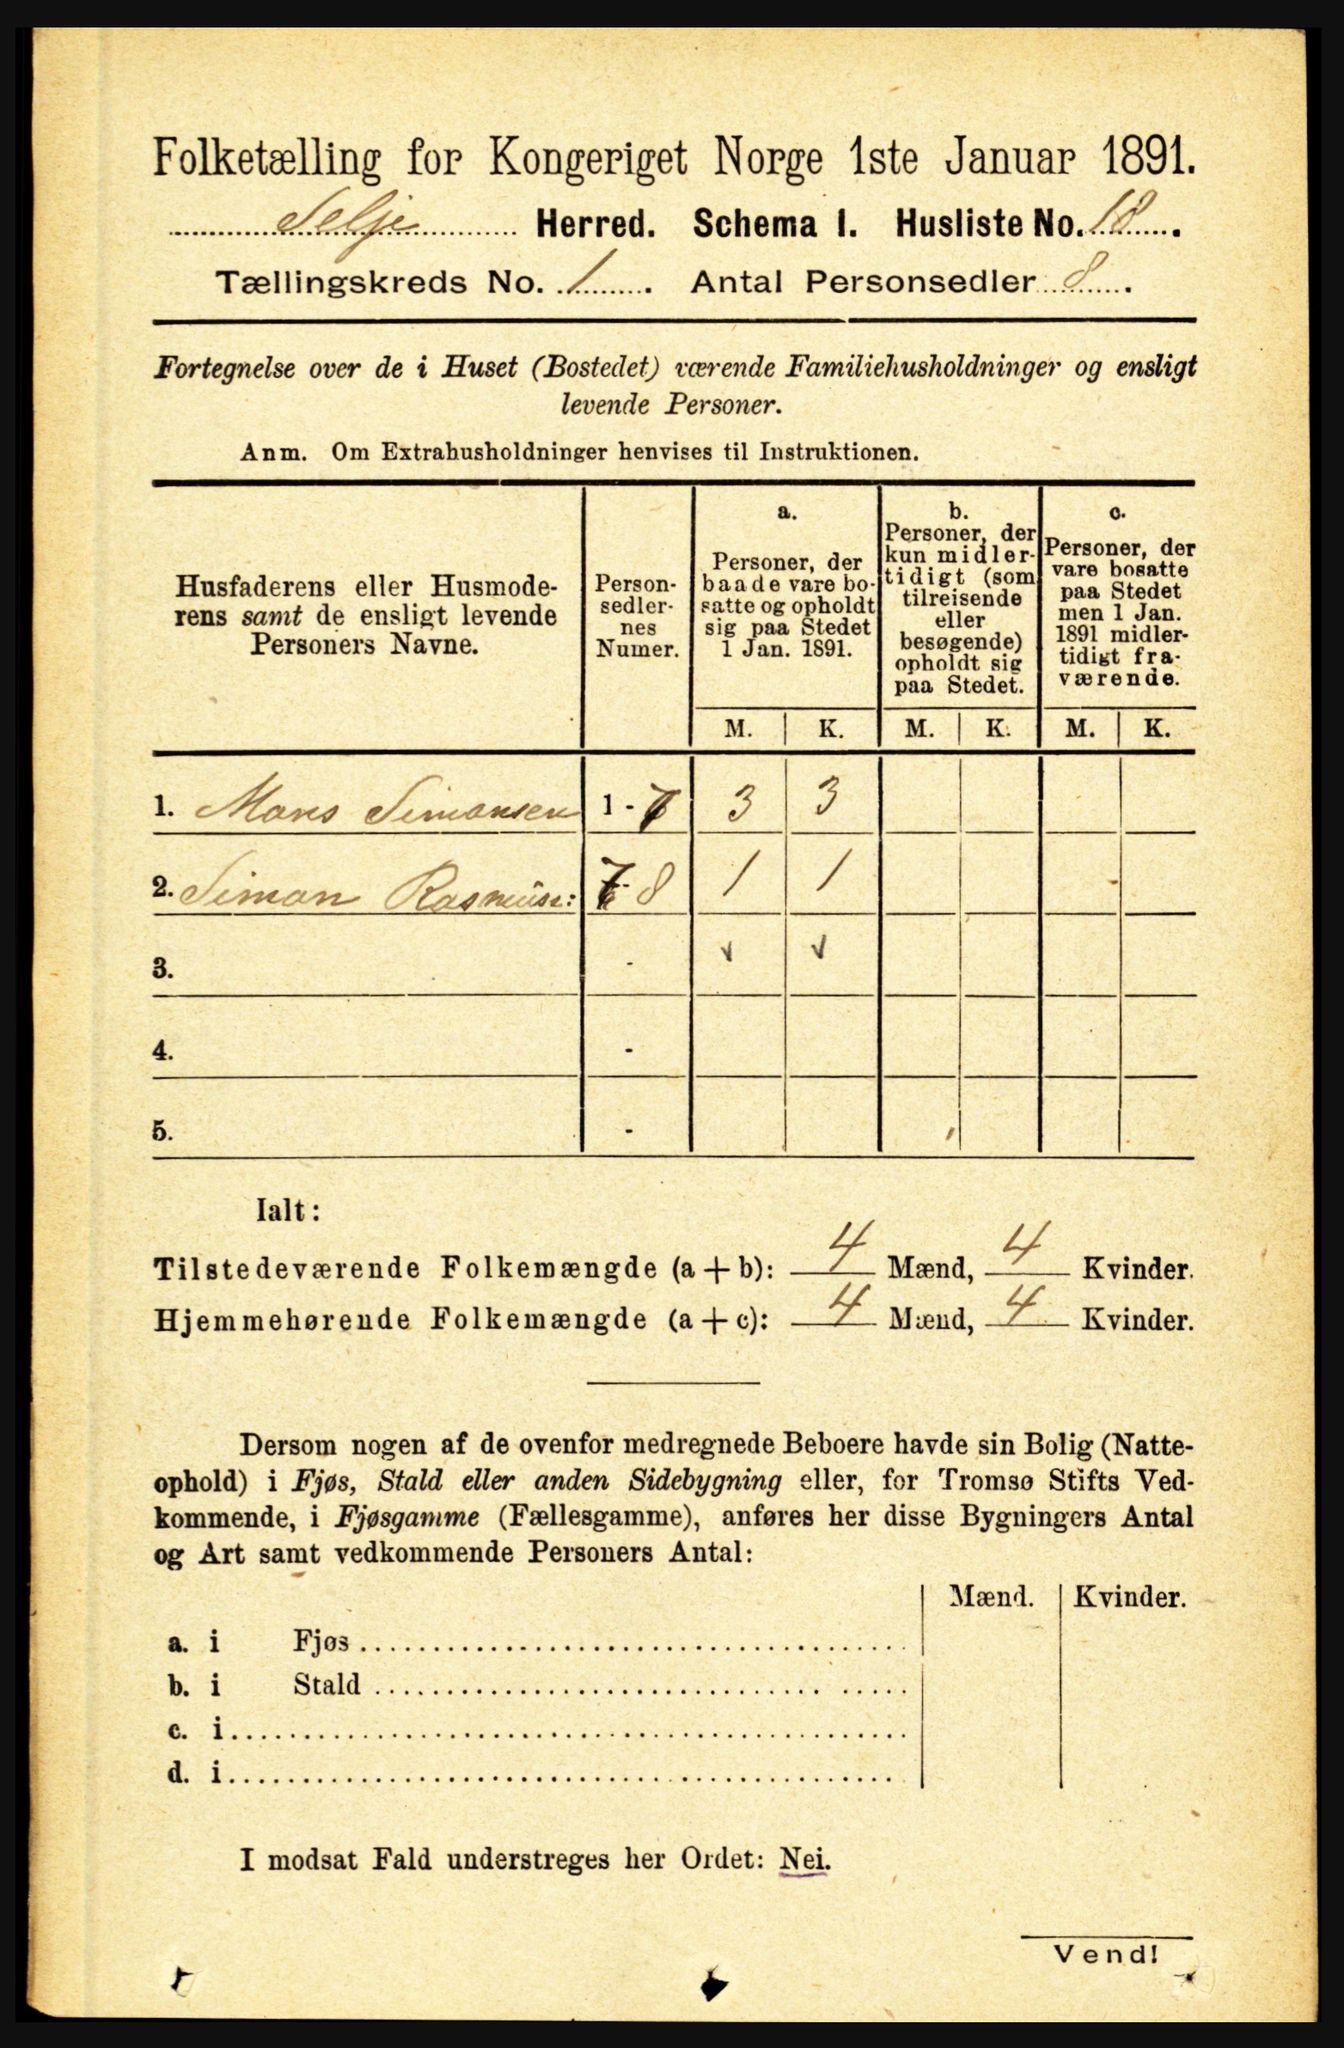 Folketælling for Kongeriget Norge 1ste Januar 1891.
Selje Herred. Schema I. Husliste No. 18.
Tællingskreds No. 1. Antal Personsedler 8.
Fortegnelse over de i Huset (Bostedet) værende Familiehusholdninger og ensligt
levende Personer.
Anm. Om Extrahusholdninger henvises til Instruktionen.
Husfaderens eller Husmode-
rens samt de ensligt levende
Personers Navne.
Person-
sedler-
nes
Numer.
a.
Personer, der
baade vare bo-
satte og opholdt
sig paa Stedet
1 Jan. 1891.
b.
Personer, der
kun midler-
tidigt (som
tilreisende
eller
besøgende)
opholdt sig
paa Stedet.
c.
Personer, der
vare bosatte
paa Stedet
men 1 Jan.
1891 midler-
tidigt fra-
værende.
M. K. M. K. M. K.
1. Mons Simonsen 1 - 7 3 3
2. Simon Rasmuss: 7 - 8 1 1
3. - √ √
4. -
5. -
Ialt:
Tilstedeværende Folkemængde (a + b): 4 Mænd, 4 Kvinder.
Hjemmehørende Folkemængde (a + c): 4 Mænd, 4 Kvinder.
Dersom nogen af de ovenfor medregnede Beboere havde sin Bolig (Natte-
ophold) i Fjøs, Stald eller anden Sidebygning eller, for Tromsø Stifts Ved-
kommende, i Fjøsgamme (Fællesgamme), anføres her disse Bygningers Antal
og Art samt vedkommende Personers Antal:
Mænd. Kvinder.
a. i Fjøs
b. i Stald
c. i
d. i
I modsat Fald understreges her Ordet: Nei.
Vend!